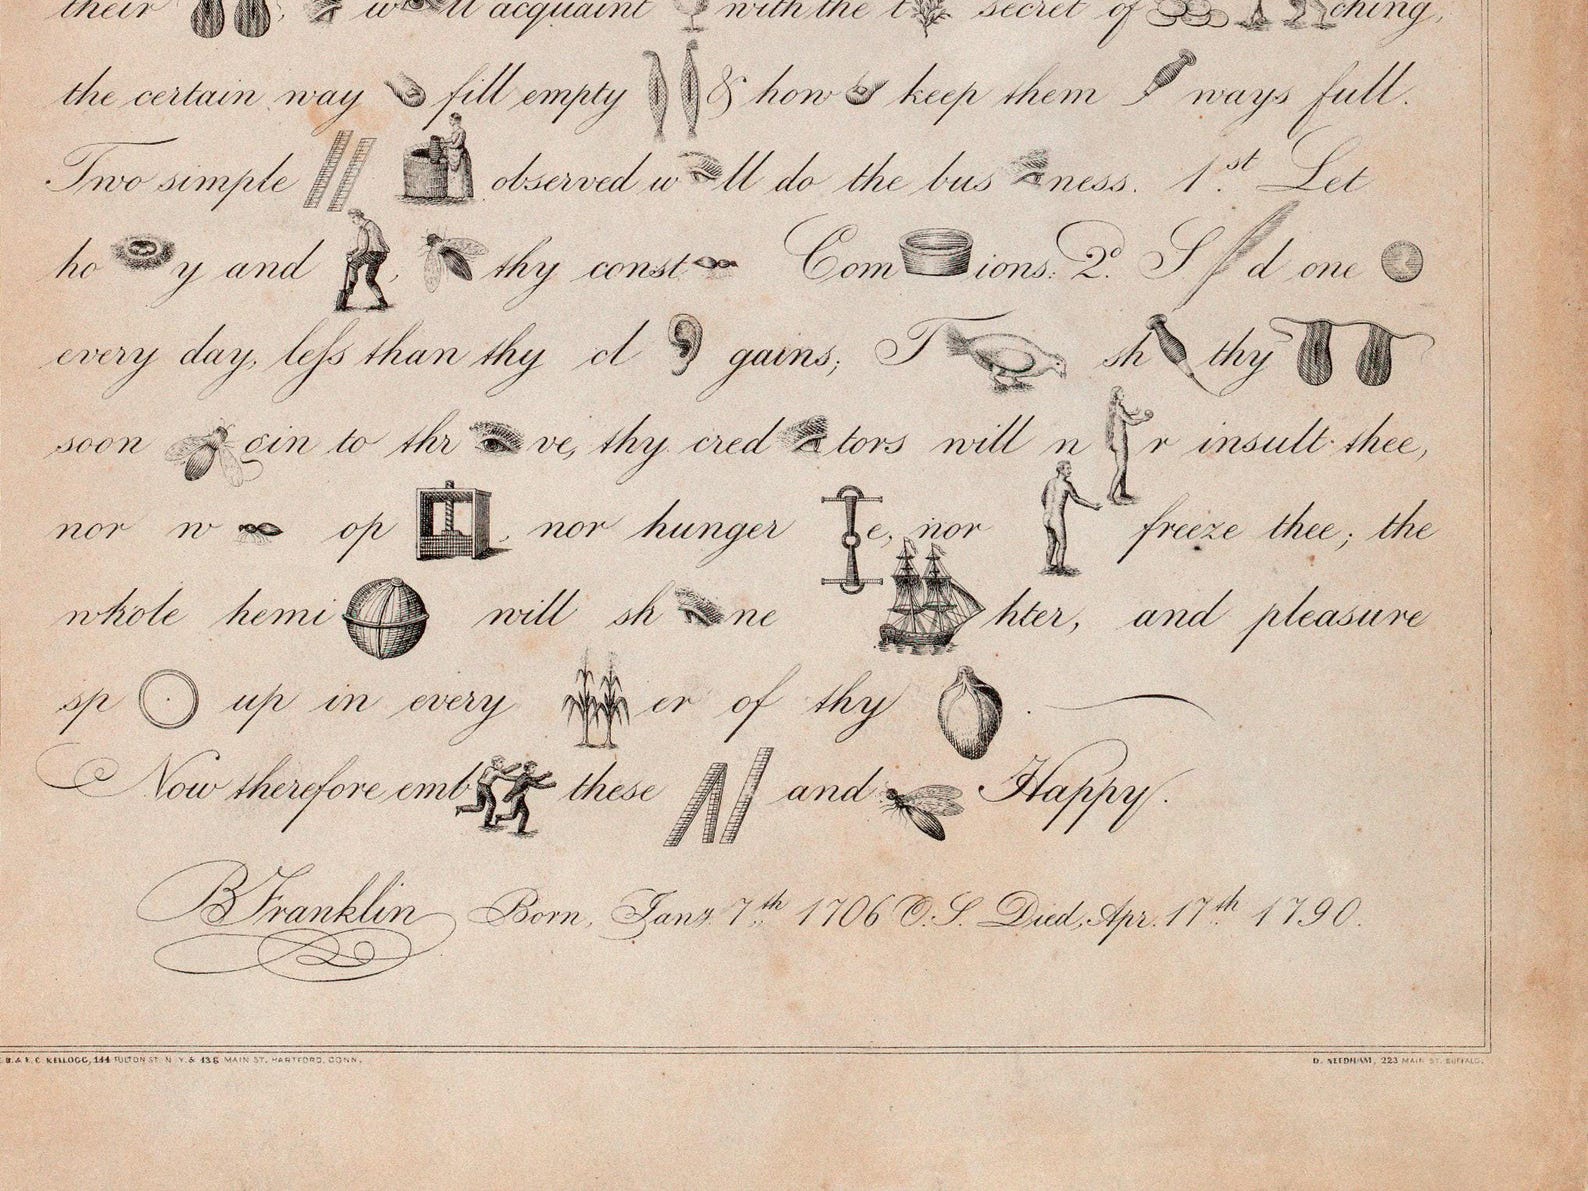 their w ll acquaint with the t secret of ching,
the certain way fill empty & how keep them ways full.
Two simple observed w ll do the bus ness. 1st Let
ho y and , thy const Com ions: 2d. S d one
every day, less than thy cl gains; T sh thy
soon gin to thr ve, thy cred tors will n r insult thee,
nor w op , nor hunger e, nor freeze thee; the
whole hemi will sh ne hter, and pleasure
sp up in every er of thy .
Now therefore emb these and Happy.
B Franklin Born, Jany. 7th 1706 O.S. Died, Apr. 17th 1790.
B. & E. C. KELLOGG, 144 FULTON ST. N.Y. & 136 MAIN ST. HARTFORD, CONN.
D. NEEDHAM, 223 MAIN ST. BUFFALO.